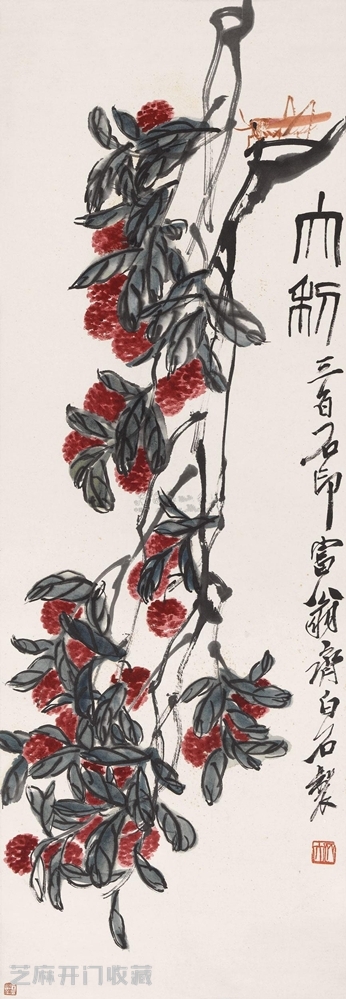 大利
三百石印富翁齊白石製
芝麻开门收藏